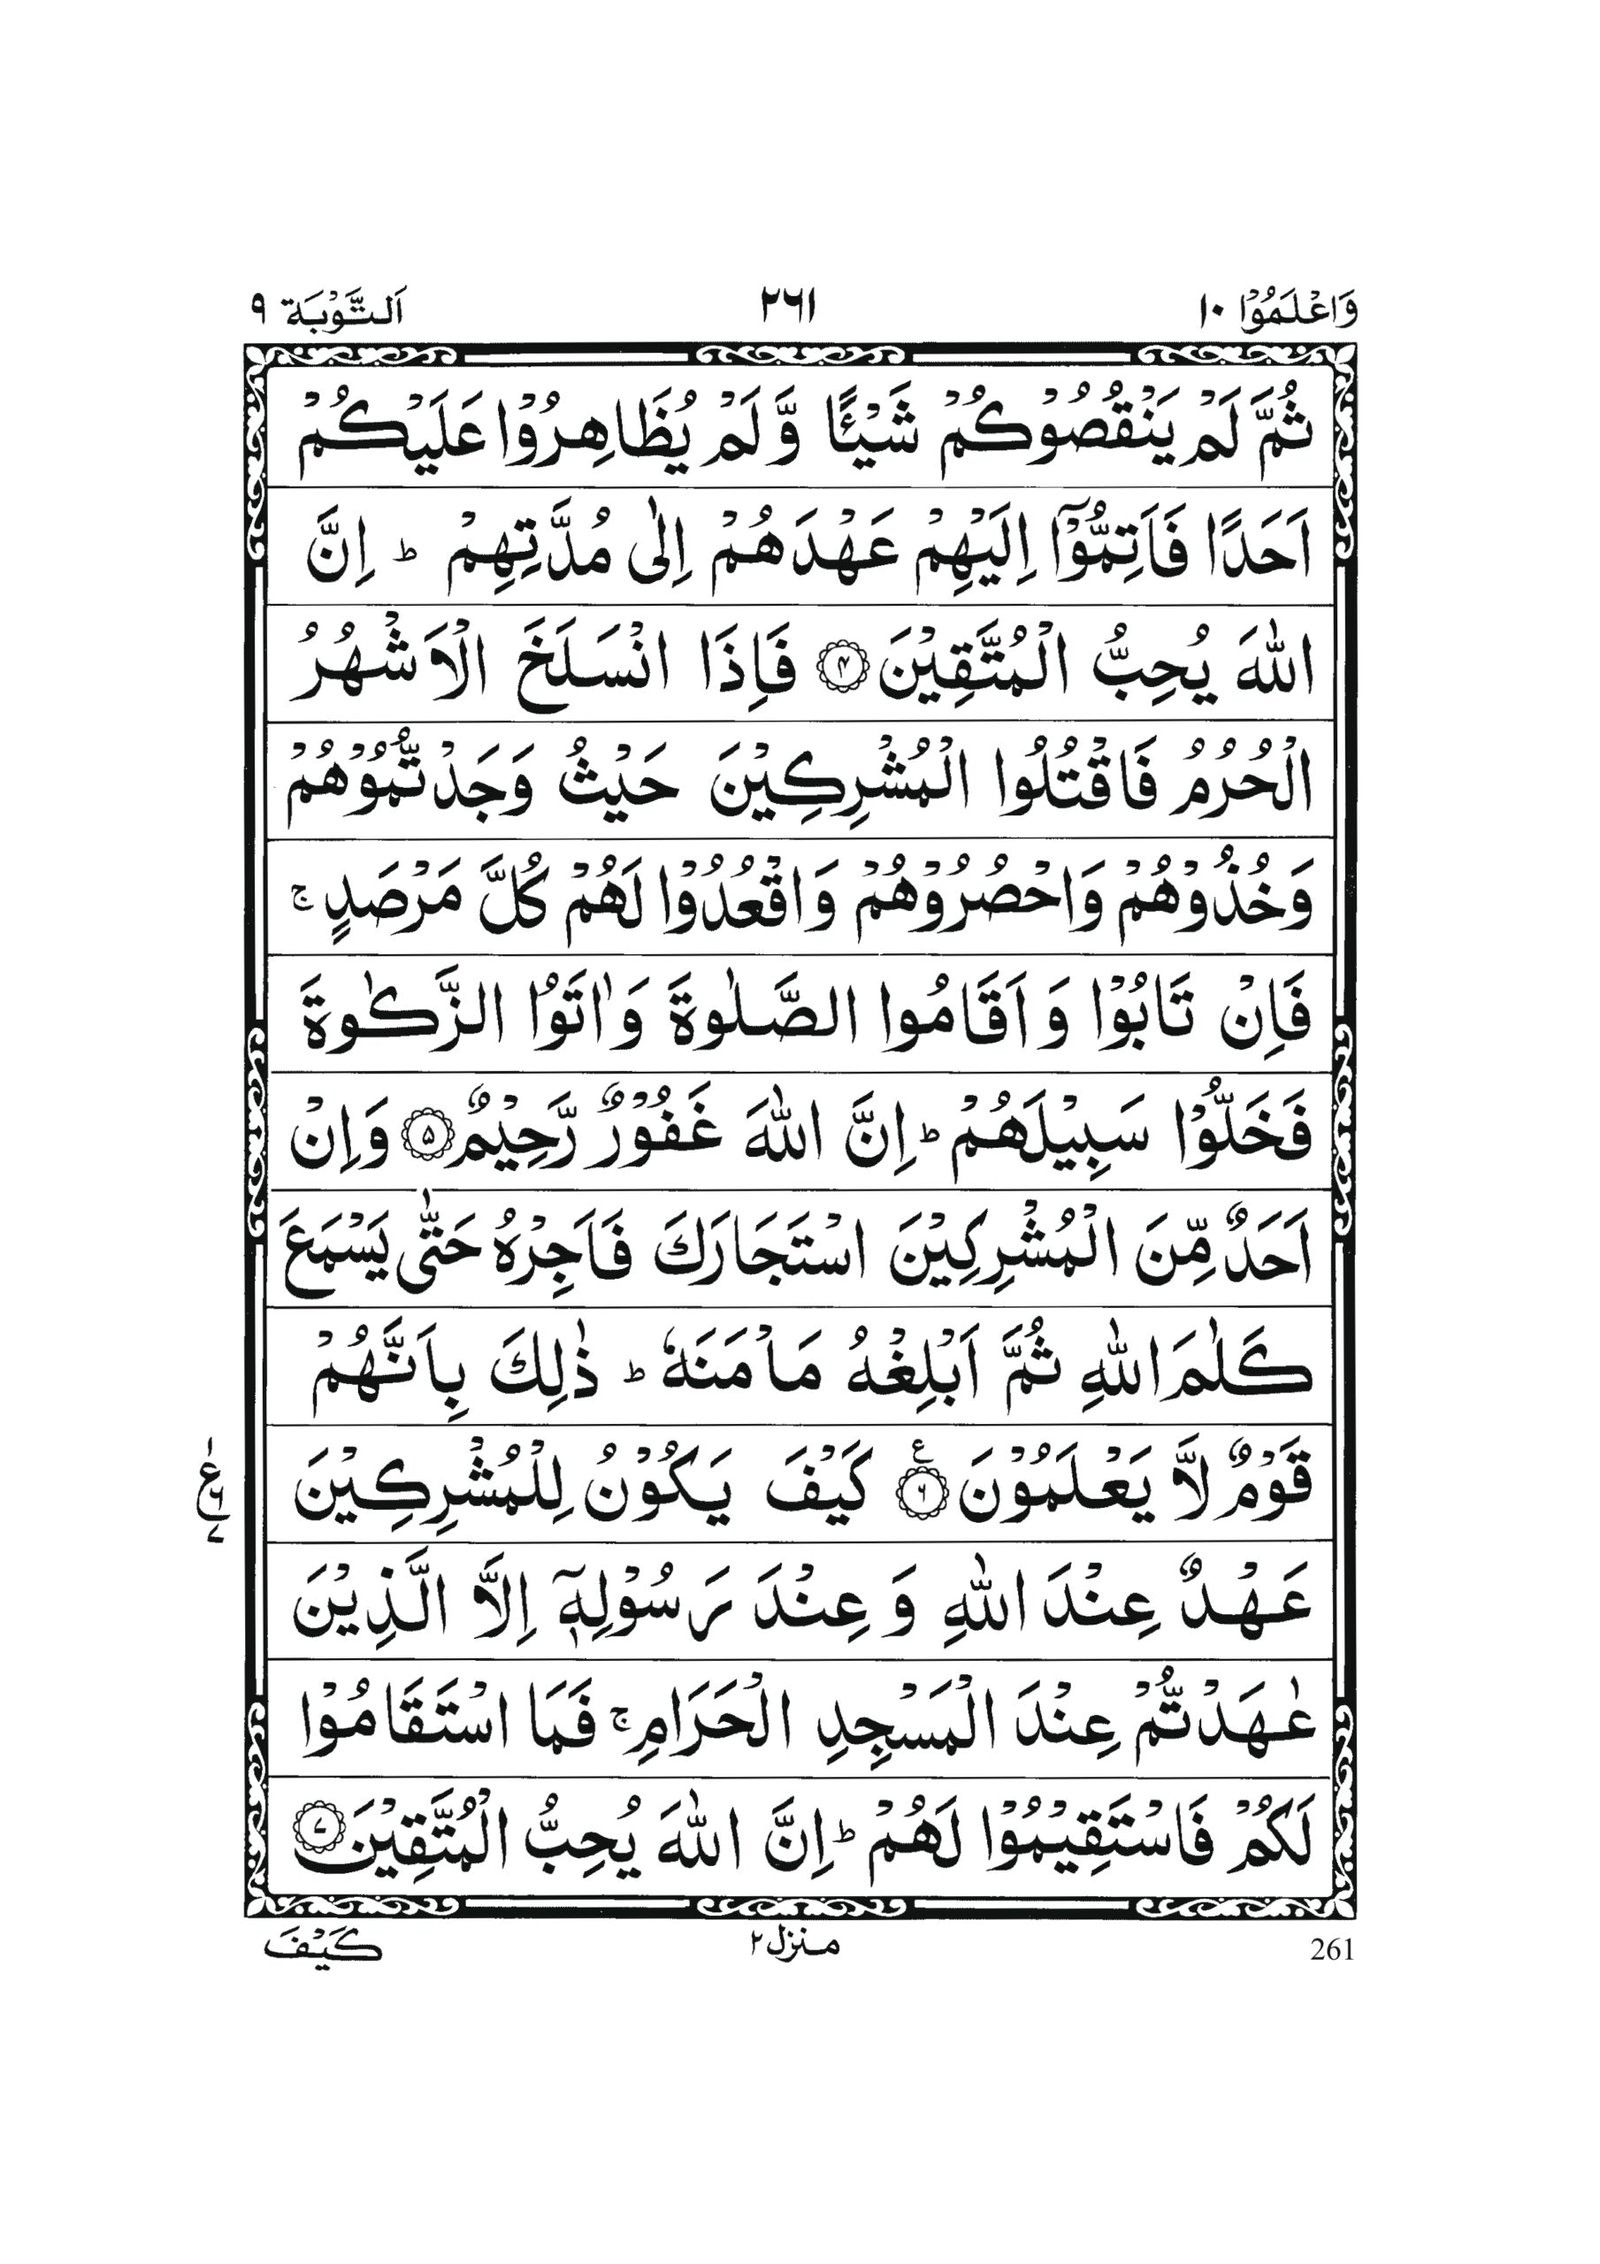 وَاعْلَمُوْۤا ١٠
٢٦١
اَلتَّوْبَة ٩
ثُمَّ لَمْ يَنْقُصُوْكُمْ شَيْـًٔا وَّ لَمْ يُظَاهِرُوْا عَلَيْكُمْ
اَحَدًا فَاَتِمُّوْۤا اِلَيْهِمْ عَهْدَهُمْ اِلٰى مُدَّتِهِمْ ؕ اِنَّ
اللّٰهَ يُحِبُّ الْمُتَّقِيْنَ ۴ فَاِذَا انْسَلَخَ الْاَشْهُرُ
الْحُرُمُ فَاقْتُلُوا الْمُشْرِكِيْنَ حَيْثُ وَجَدْتُّمُوْهُمْ
وَخُذُوْهُمْ وَاحْصُرُوْهُمْ وَاقْعُدُوْا لَهُمْ كُلَّ مَرْصَدٍ ۚ
فَاِنْ تَابُوْا وَ اَقَامُوا الصَّلٰوةَ وَاٰتَوُا الزَّكٰوةَ
فَخَلُّوْا سَبِيْلَهُمْ ؕ اِنَّ اللّٰهَ غَفُوْرٌ رَّحِيْمٌ ۵ وَاِنْ
اَحَدٌ مِّنَ الْمُشْرِكِيْنَ اسْتَجَارَكَ فَاَجِرْهُ حَتّٰى يَسْمَعَ
كَلٰمَ اللّٰهِ ثُمَّ اَبْلِغْهُ مَاْمَنَهٗ ؕ ذٰلِكَ بِاَنَّهُمْ
قَوْمٌ لَّا يَعْلَمُوْنَ ۶ ع كَيْفَ يَكُوْنُ لِلْمُشْرِكِيْنَ
عَهْدٌ عِنْدَ اللّٰهِ وَ عِنْدَ رَسُوْلِهٖۤ اِلَّا الَّذِيْنَ
عٰهَدْتُّمْ عِنْدَ الْمَسْجِدِ الْحَرَامِ ۚ فَمَا اسْتَقَامُوْا
لَكُمْ فَاسْتَقِيْمُوْا لَهُمْ ؕ اِنَّ اللّٰهَ يُحِبُّ الْمُتَّقِيْنَ ۷
261
منزل ٢
كَيْفَ